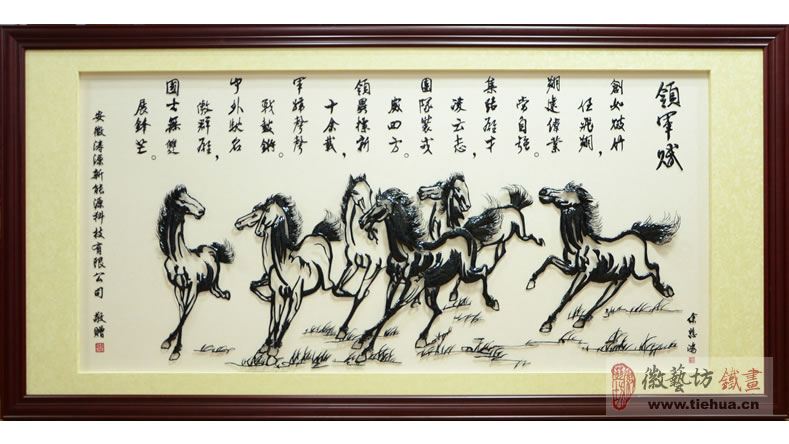 領軍賦
創如破竹
任飛翔，
翔達偉業
當自強。
集結雄才
凌云志，
團隊裝戎
威四方。
領異標新
十余載，
軍聲聲
戰鼓鏘。
中外馳名
傲群雄，
國士無雙
展鋒芒。
安徽源新能源科技有限公司 敬贈
徐悲鴻
徽藝坊 鐵畫
www.tiehua.cn